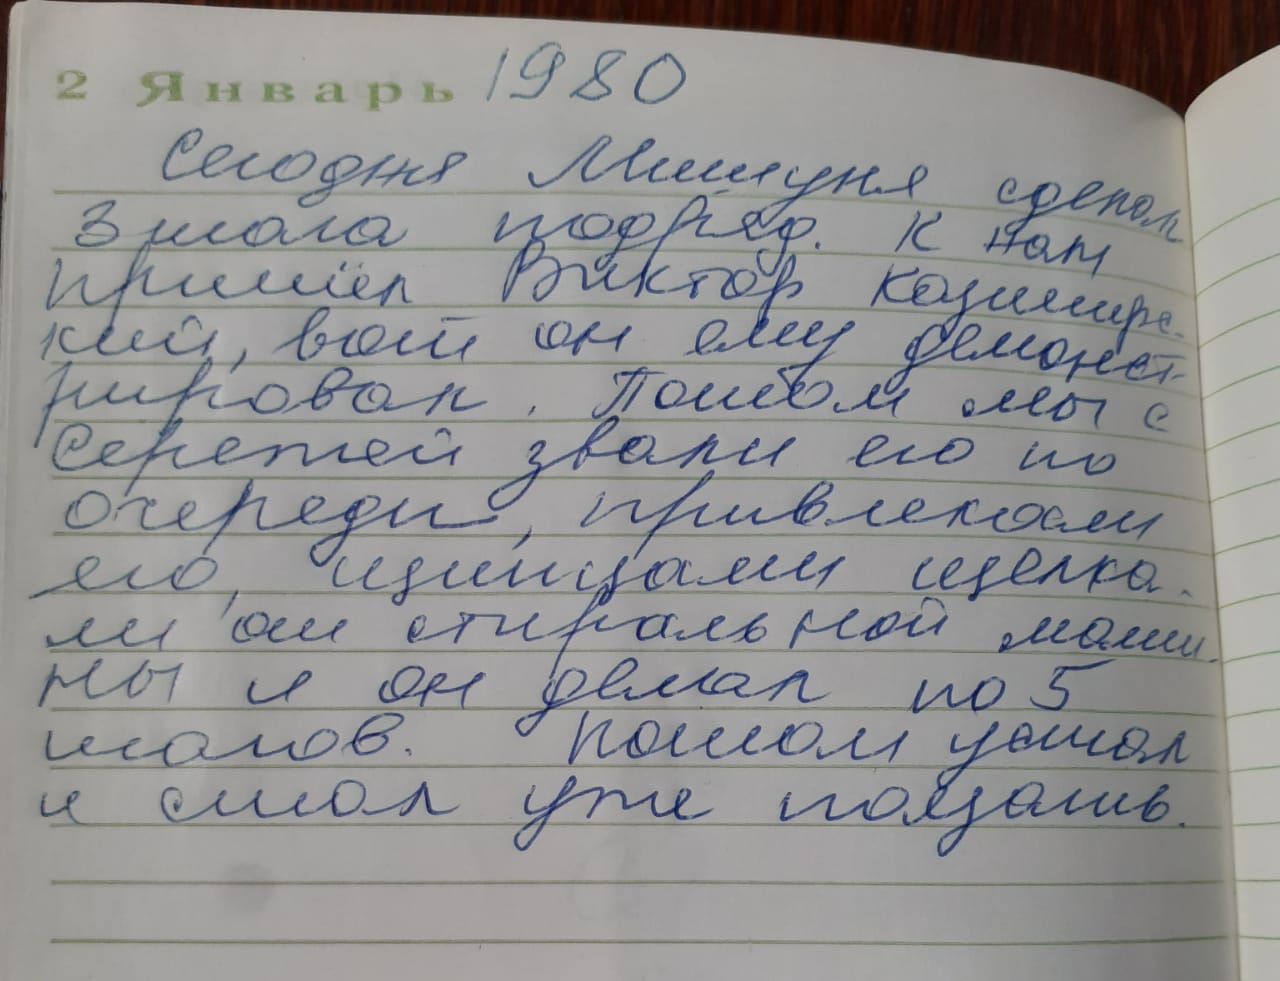 2 Январь 1980
Сегодня Мишуня сделал
3 шага подряд. К нам
пришёл Виктор Казимирс-
кий, вот он ему демонст-
рировал. Потом мы с
Сережей звали его по
очереди, привлекали
его, щипцами щелка-
ли от стиральной маши-
ны и он делал по 5
шагов. Потом устал
и стал уже ползать.